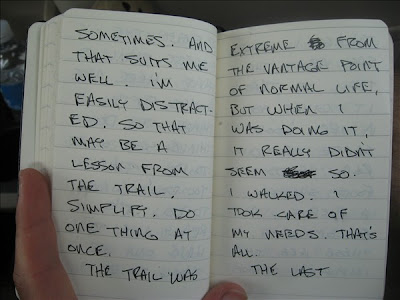 SOMETIMES. AND
THAT SUITS ME
WELL. I'M
EASILY DISTRACT-
ED. SO THAT
MAY BE A
LESSON FROM
THE TRAIL.
SIMPLIFY. DO
ONE THING AT
ONCE.
THE TRAIL WAS
EXTREME FROM
THE VANTAGE POINT
OF NORMAL LIFE,
BUT WHEN I
WAS DOING IT,
IT REALLY DIDN'T
SEEM SO.
I WALKED. I
TOOK CARE OF
MY NEEDS. THAT'S
ALL.
THE LAST